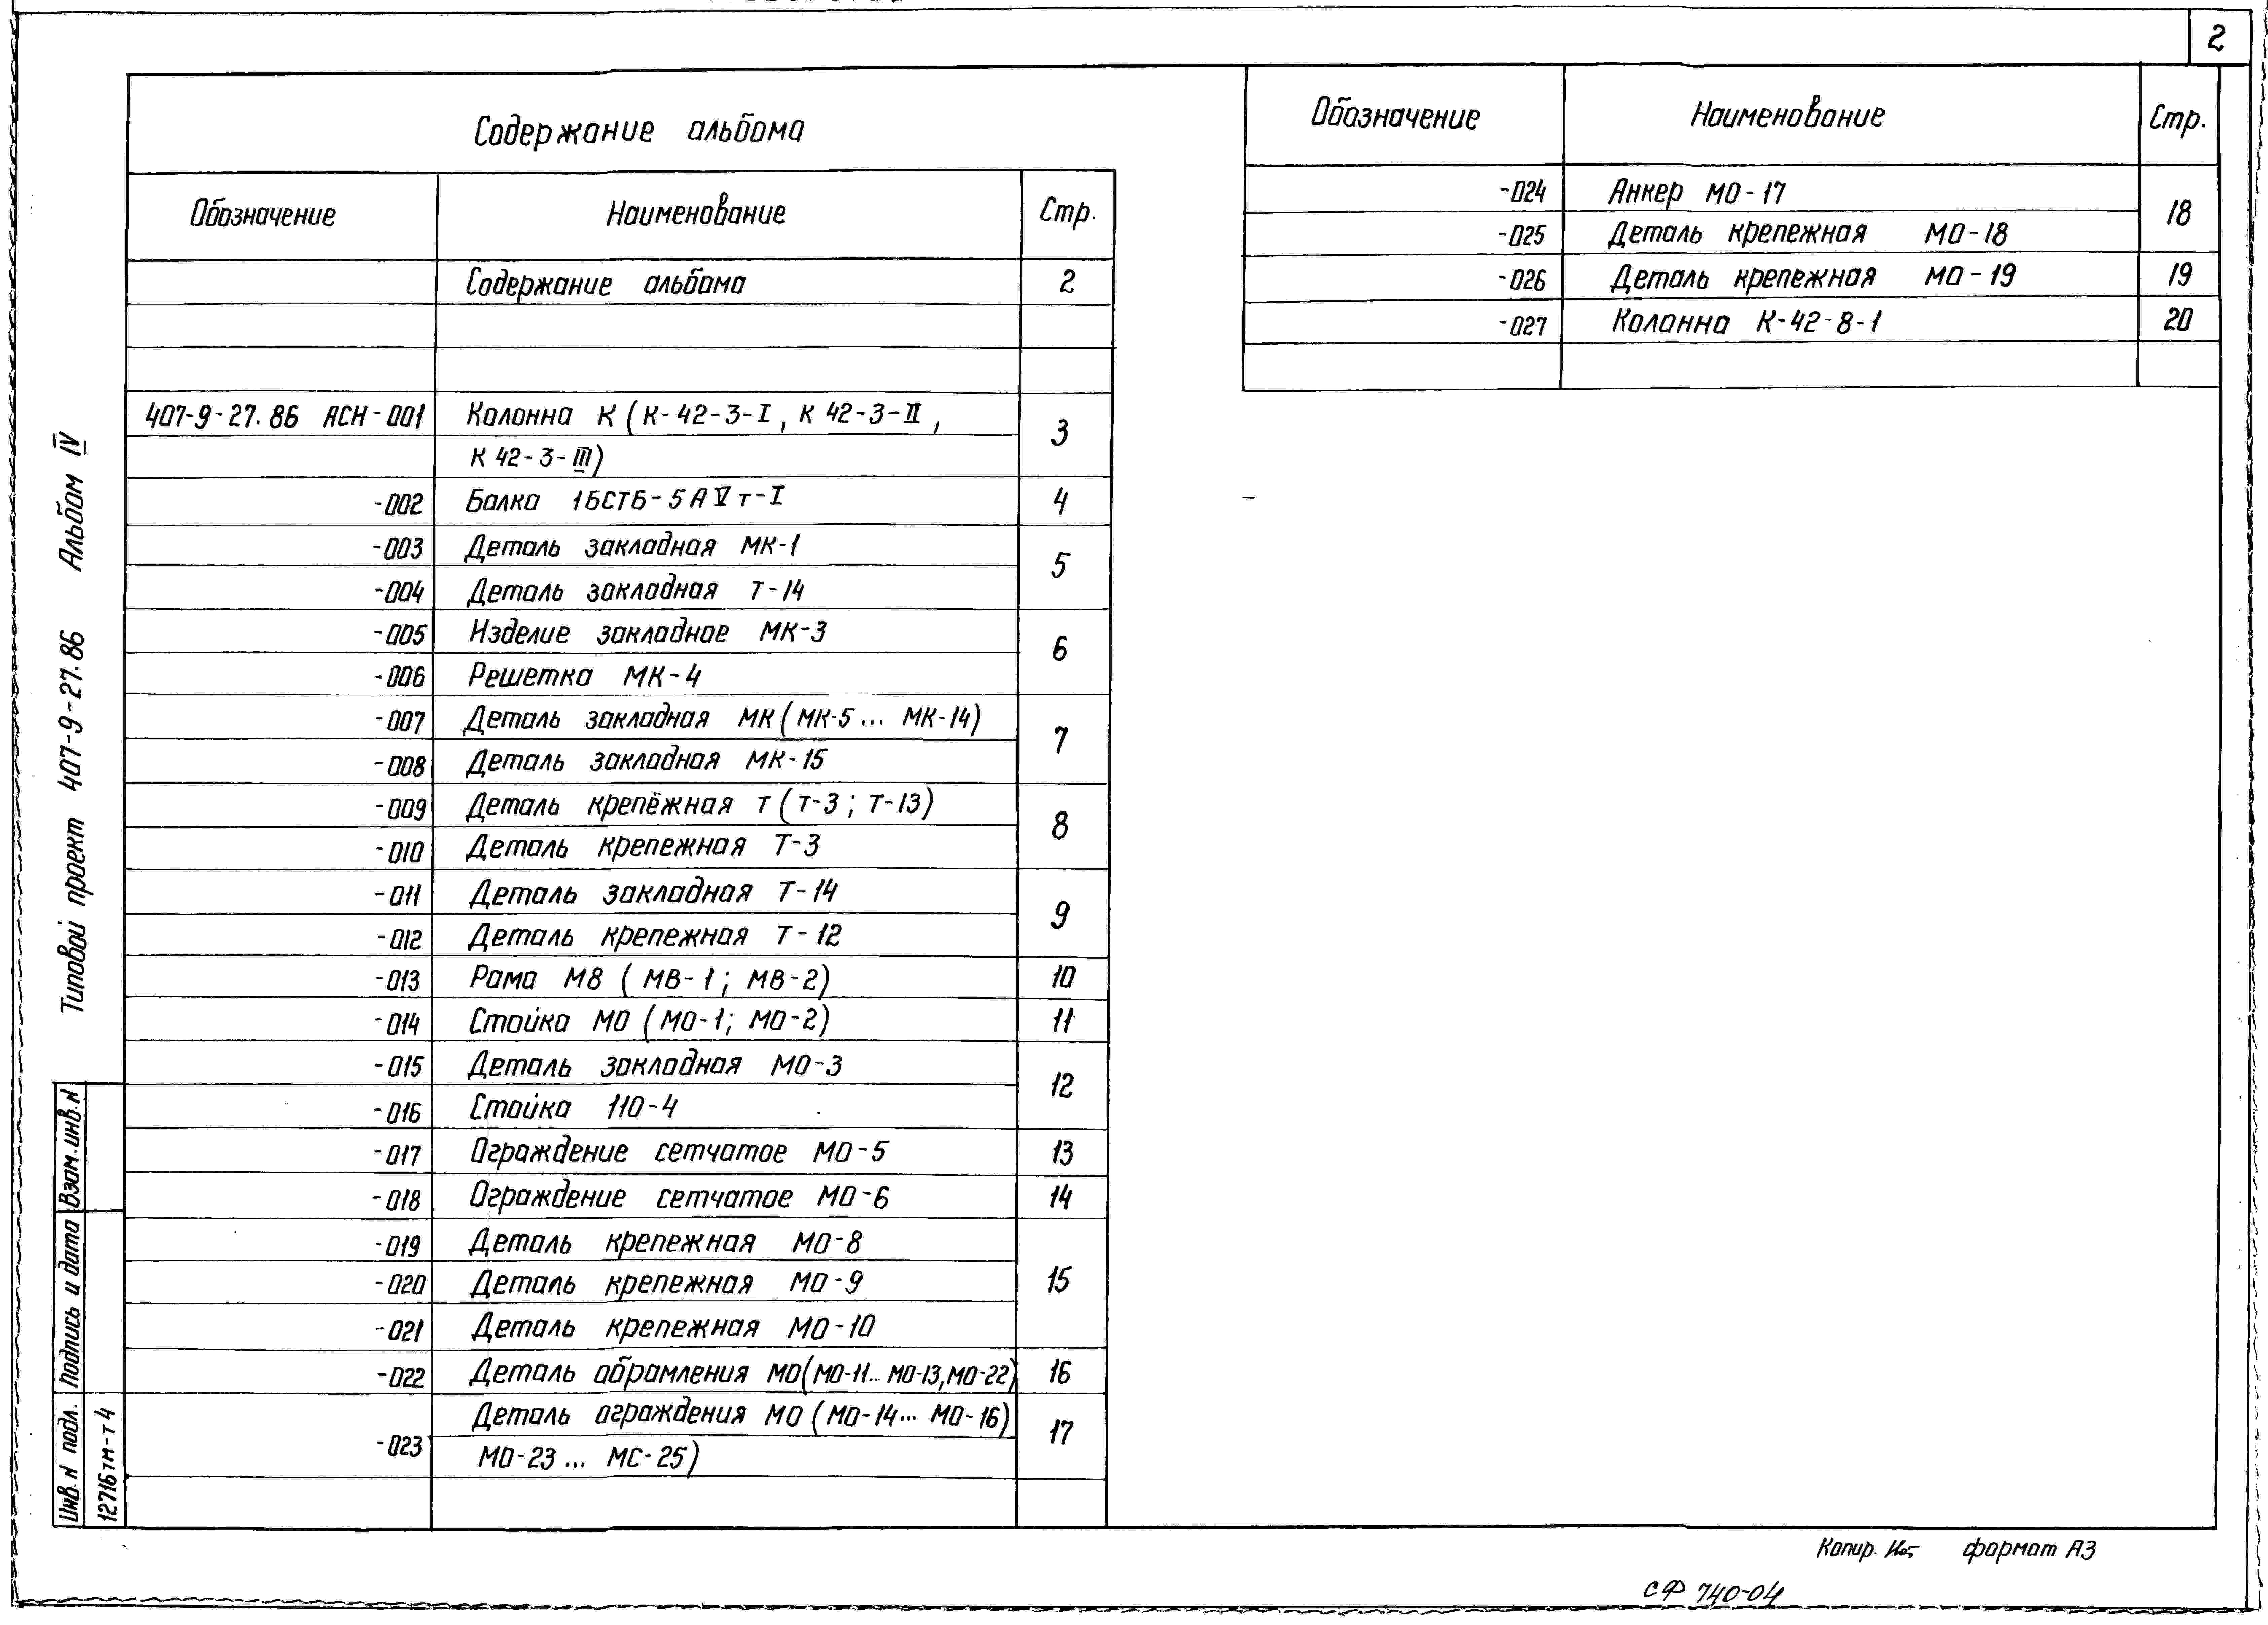 2
Содержание альбома
Обозначение Наименование Стр.
Содержание альбома 2
407-9-27.86 АСН-001 Колонна К (К-42-3-I, К 42-3-II, 3
К 42-3-III)
-002 Балка 1БСТБ-5АVт-I 4
-003 Деталь закладная МК-1 5
-004 Деталь закладная Т-14
-005 Изделие закладное МК-3 6
-006 Решетка МК-4
-007 Деталь закладная МК (МК-5... МК-14) 7
-008 Деталь закладная МК-15
-009 Деталь крепёжная Т (Т-3; Т-13) 8
-010 Деталь крепежная Т-3
-011 Деталь закладная Т-14 9
-012 Деталь крепежная Т-12
-013 Рама М8 (МВ-1; МВ-2) 10
-014 Стойка МО (МО-1; МО-2) 11
-015 Деталь закладная МО-3 12
-016 Стойка 110-4
-017 Ограждение сетчатое МО-5 13
-018 Ограждение сетчатое МО-6 14
-019 Деталь крепежная МО-8 15
-020 Деталь крепежная МО-9
-021 Деталь крепежная МО-10
-022 Деталь обрамления МО(МО-11... МО-13,МО-22) 16
-023 Деталь ограждения МО (МО-14... МО-16) 17
МО-23... МС-25)
Обозначение Наименование Стр.
-024 Анкер МО-17 18
-025 Деталь крепежная МО-18
-026 Деталь крепежная МО-19 19
-027 Колонна К-42-8-1 20
Типовой проект 407-9-27.86 Альбом IV
Взам.инв.N
Подпись и дата
Инв.N подл.
12716тм-т4
Копир. формат А3
СФ 740-04